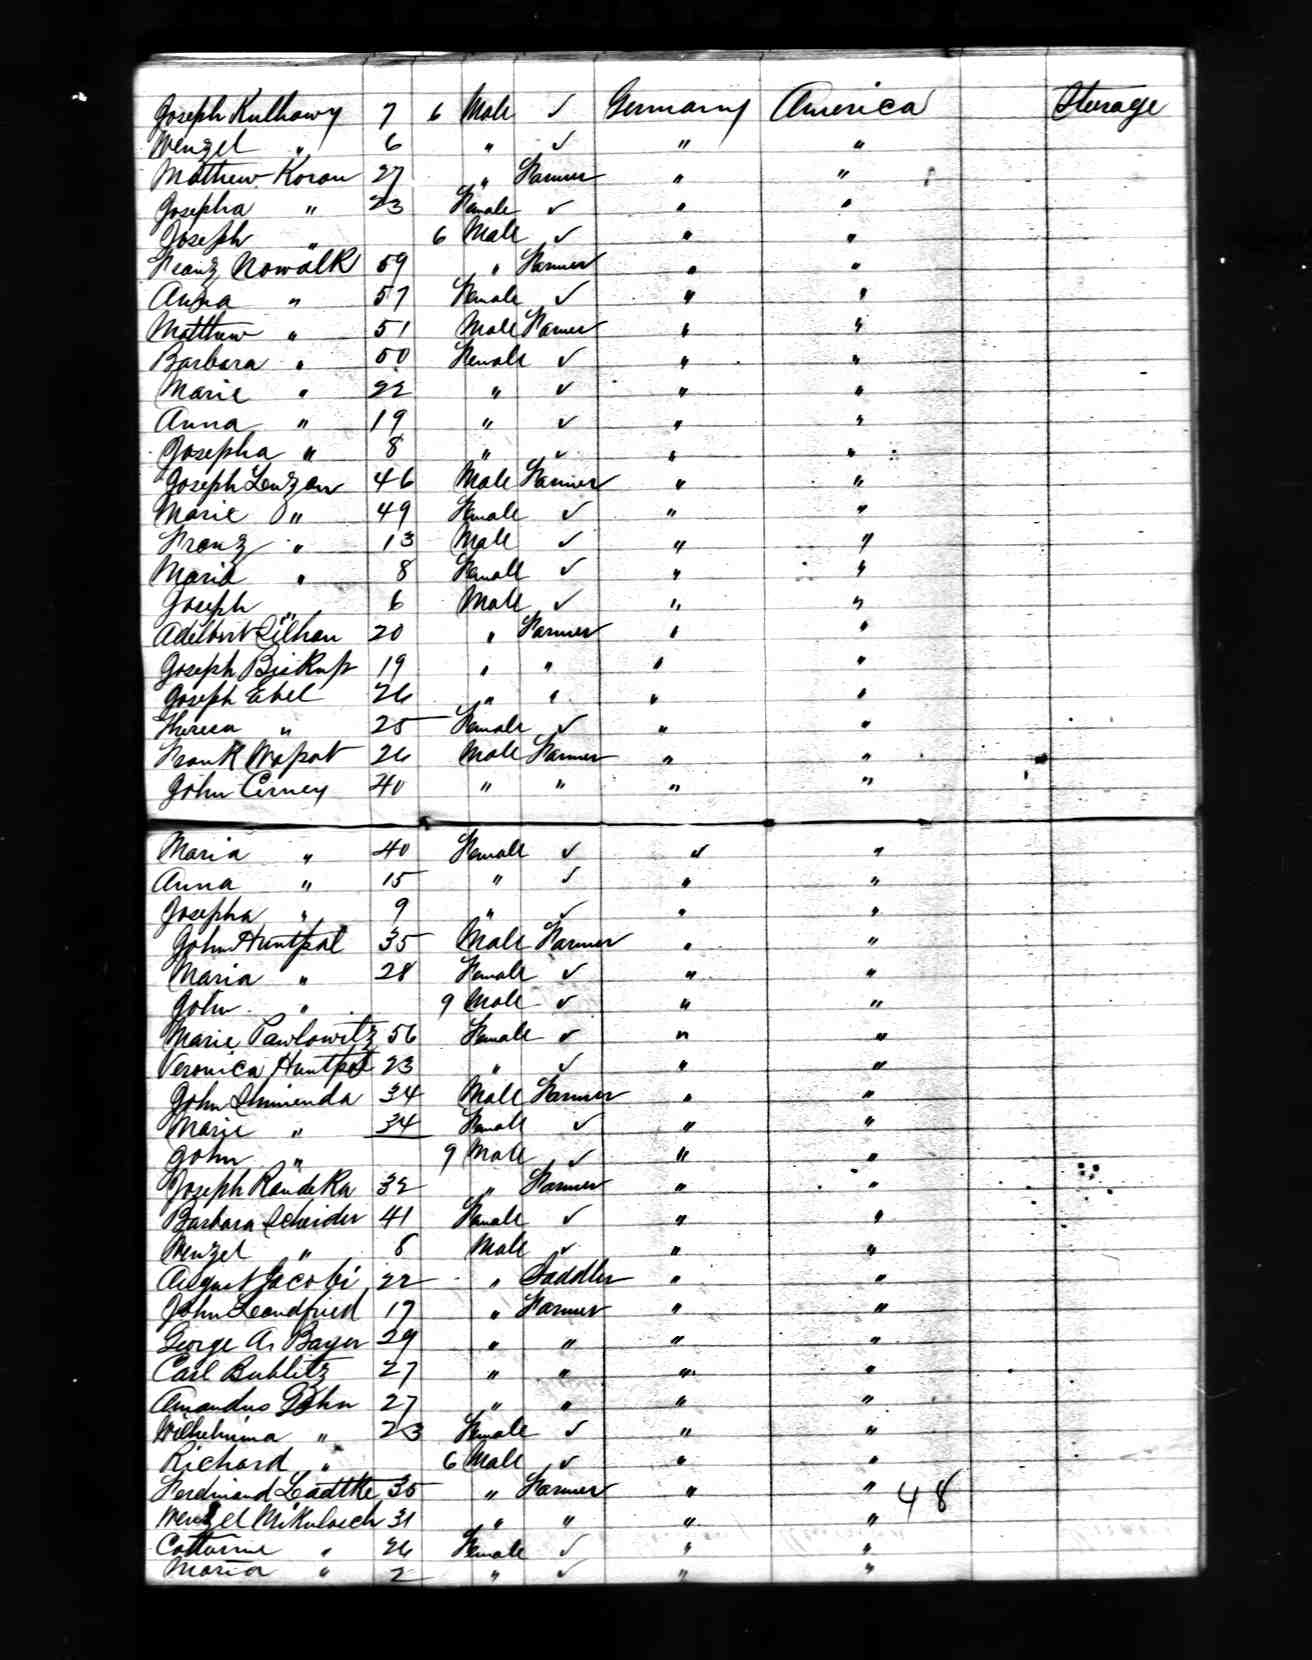 Joseph Kulhawy 7 6 Male ✓ Germany America Sterage
Wenzel " 6 " ✓ " "
Mathew Koran 27 " Farmer " "
Josepha " 23 Female ✓ " "
Joseph " 6 Male ✓ " "
Franz Nowalk 59 " Farmer " "
Anna " 57 Female ✓ " "
Matthew " 51 Male Farmer " "
Barbara " 50 Female ✓ " "
Marie " 22 " ✓ " "
Anna " 19 " ✓ " "
Josepha " 8 " ✓ " "
Joseph 46 Male Farmer " "
Marie " 49 Female ✓ " "
Franz " 13 Male ✓ " "
Maria " 8 Female ✓ " "
Joseph " 6 Male ✓ " "
Adelbert 20 " Farmer " "
Joseph Biskup 19 " " " "
Joseph Ebel 26 " " " "
Theresa " 25 Female ✓ " "
Frank 26 Male Farmer " "
John Cerney 40 " " " "
Maria " 40 Female ✓ " "
Anna " 15 " ✓ " "
Josepha " 9 " ✓ " "
John Huntpol 35 Male Farmer " "
Maria " 28 Female ✓ " "
John " 9 Male ✓ " "
Marie Pawlowitz 56 Female ✓ " "
Veronica 23 " ✓ " "
John 34 Male Farmer " "
Marie " 34 Female ✓ " "
John " 9 Male ✓ " "
Joseph 32 " Farmer " "
Barbara Scheider 41 Female ✓ " "
Wenzel " 8 Male ✓ " "
August Jacobi 22 " Saddler " "
John Leandfried 17 " Farmer " "
George A. Bayer 29 " " " "
Carl Bublitz 27 " " " "
Amandus John 27 " " " "
Wilhelmina " 23 Female ✓ " "
Richard " 6 Male ✓ " "
Ferdinand Ladtke 35 " Farmer " " 48
Wenzel 31 " " " "
Catharine " 26 Female ✓ " "
Maria " 2 " ✓ " "